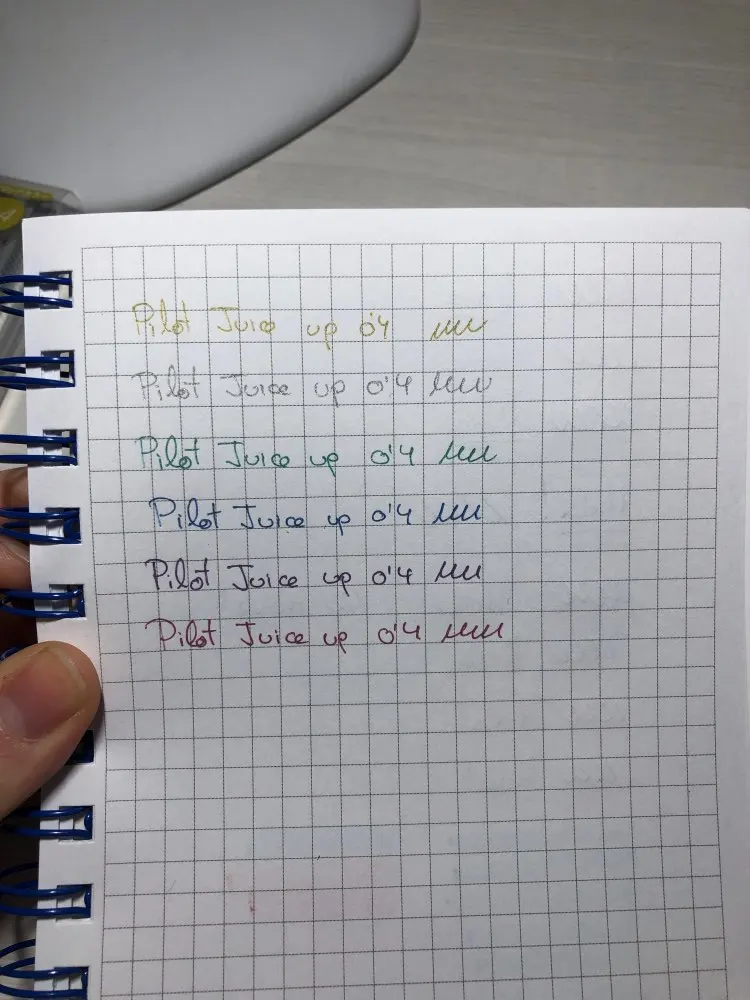 Pilot Juice up 0'4 мм
Pilot Juice up 0'4 мм
Pilot Juice up 0'4 мм
Pilot Juice up 0'4 мм
Pilot Juice up 0'4 мм
Pilot Juice up 0'4 мм